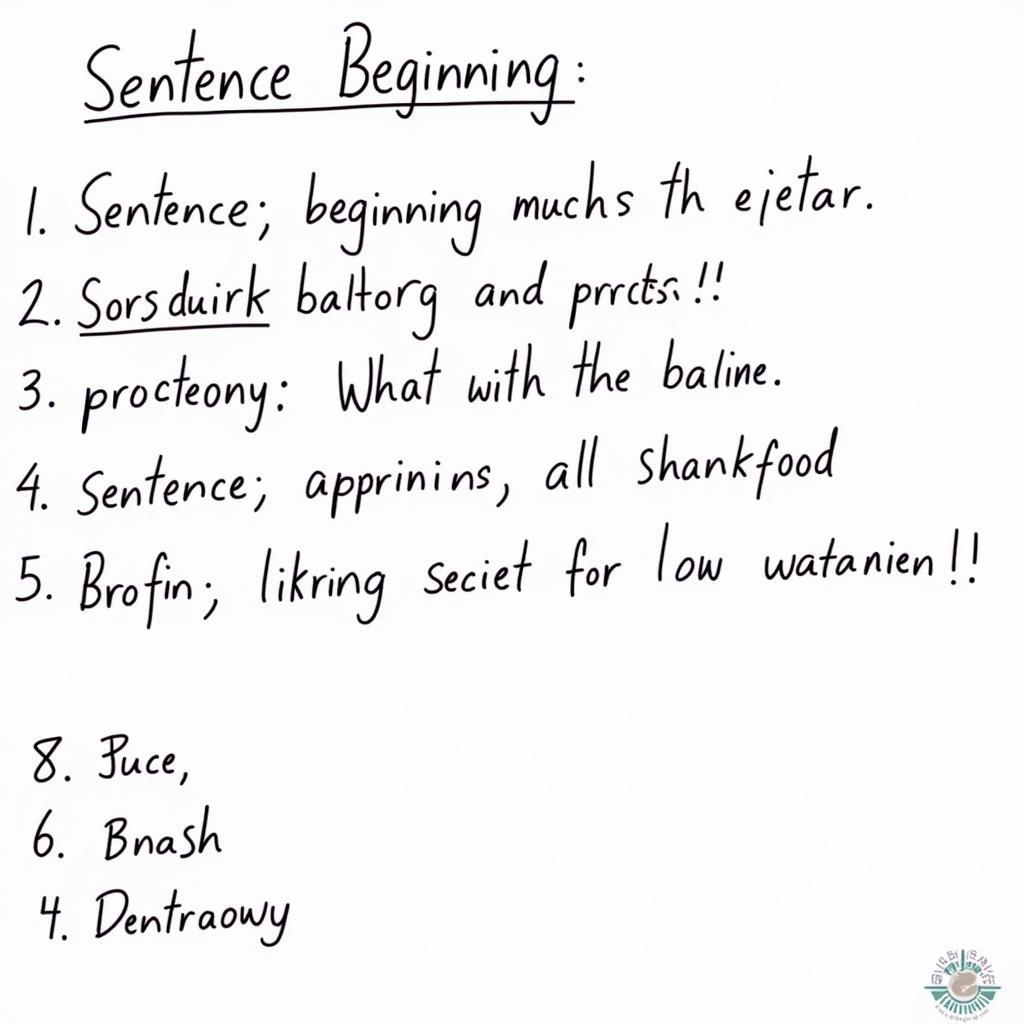 Sentence Beginning:
1. Sentence; beginning muchs th ejetar.
2. Sorsduirk baltorg and prrcts.!!
3. procteony: What with the baline.
4. Sentence; apprinins, all shankfood
5. Brofin; likring seciet for low watanien!!
8. Juce,
6. Bnash
4. Dentraowy